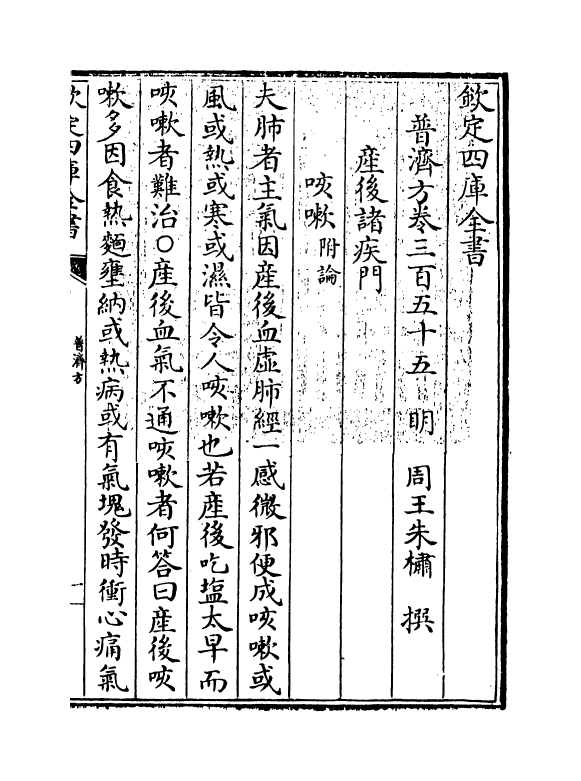 欽定四庫全書
普濟方卷三百五十五 明 周王朱橚 撰
產後諸疾門
咳嗽附論
夫肺者主氣因產後血虛肺經一感微邪便成咳嗽或
風或熱或寒或濕皆令人咳嗽也若產後吃塩太早而
咳嗽者難治○產後血氣不通咳嗽者何答曰產後咳
嗽多因食熱麵壅納或熱病或有氣塊發時衝心痛氣
欽定四庫全書
普濟方
一